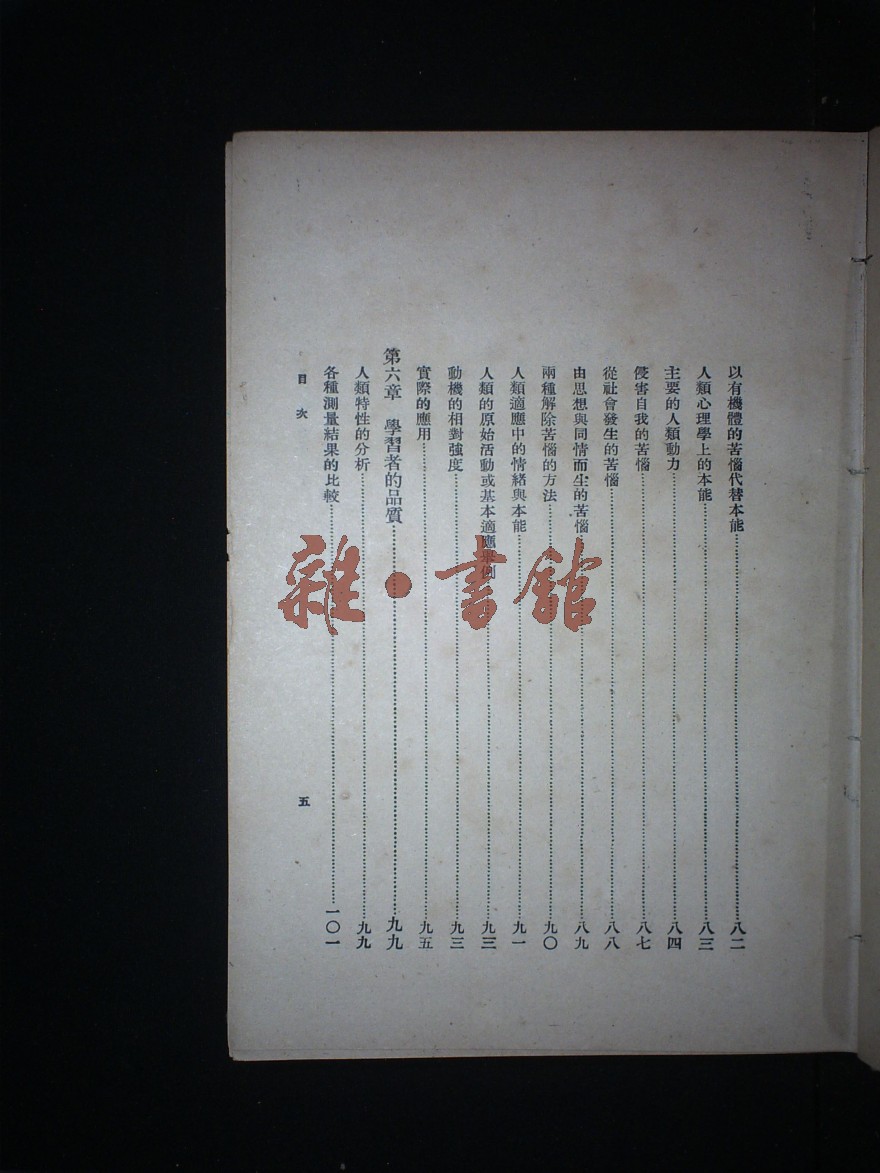 以有機體的苦惱代替本能…………八二
人類心理學上的本能…………八三
主要的人類動力…………八四
侵害自我的苦惱…………八七
從社會發生的苦惱…………八八
由思想與同情而生的苦惱…………八九
兩種解除苦惱的方法…………九〇
人類適應中的情緒與本能…………九一
人類的原始活動或基本適應舉例…………九三
動機的相對強度…………九三
實際的應用…………九五
第六章　學習者的品質…………九九
人類特性的分析…………九九
各種測量結果的比較…………一〇一
目次
五
雜·書館